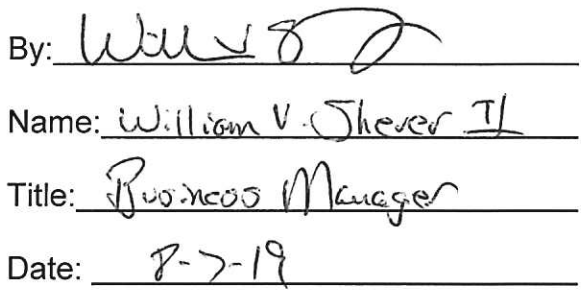 By: Will V S
Name: William V. Sherer II
Title: Business Manager
Date: 8-7-19